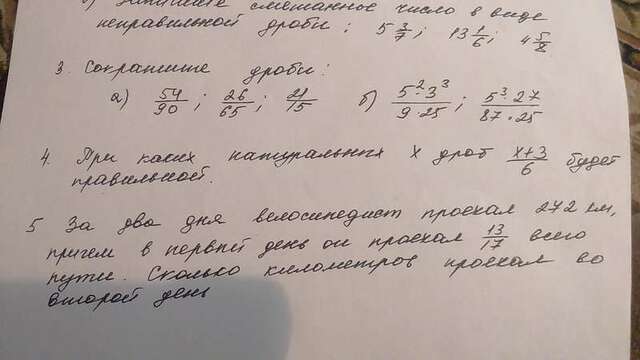 б) Запишите смешанное число в виде
неправильной дроби; 5 3/7; 13 1/6; 4 5/8
3. Сократите дроби:
а) 54/90; 26/65; 21/15 б) 5²·3³/9·25; 5³·27/87·25
4. При каких натуральных х дроб х+3/6 будет
правильной.
5 За два дня велосипедист проехал 272 км,
причем в первый день он проехал 13/17 всего
пути. Сколько километров проехал во
второй день